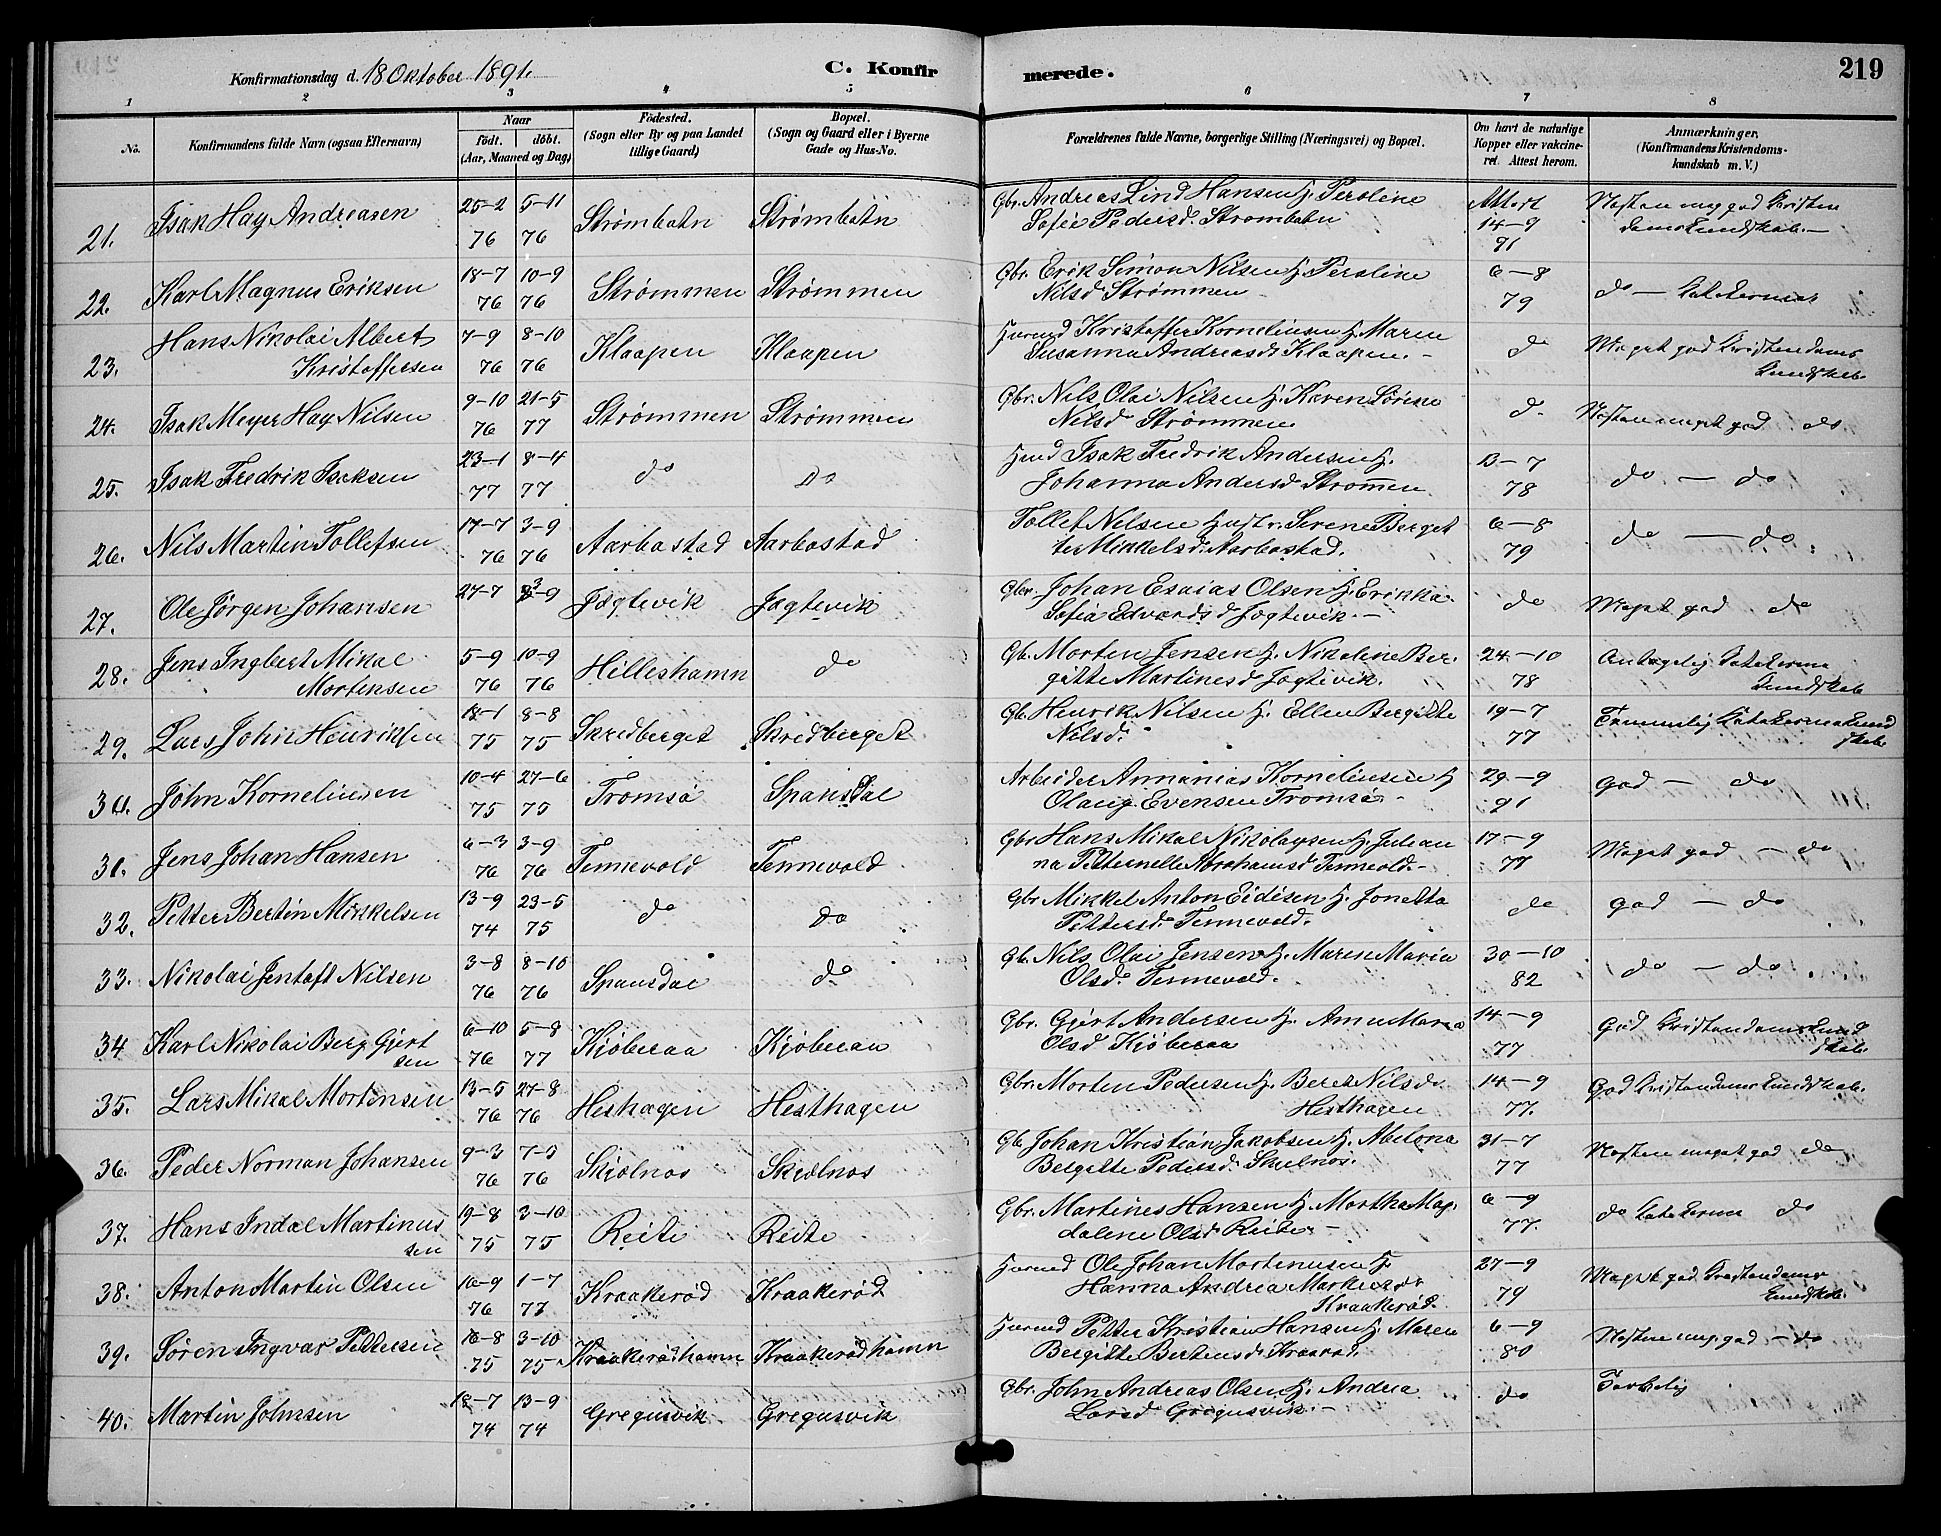 219
Konfirmationsdag d. 18 Oktober 1891.
C. Konfirmerede.
1 2 3 4 5 6 7 8
No.
Konfirmandens fulde Navn (ogsaa Efternavn)
Naar
født. døbt.
(Aar, Maaned og Dag)
Fødested.
(Sogn eller By og paa Landet
tillige Gaard)
Bopæl.
(Sogn og Gaard eller i Byerne
Gade og Hus-No.
Forældrenes fulde Navne, borgerlige Stilling (Næringsvei) og Bopæl.
Om havt de naturlige
Kopper eller vakcine-
ret. Attest herom.
Anmærkninger.
(Konfirmandens Kristendoms-
kundskab m. V.)
21. Isak Hay Andreasen 25-2 76 5-11 76 Strømbotn Strømbotn Gbr. Andreas Lind Hansen H. Peroline
Sofie Pedersd. Strømbotn Attest 14-9 91 Næsten meg god Kristen
domskundskab. -
22. Karl Magnus Eriksen 18-7 76 10-9 76 Strømmen Strømmen Gbr. Erik Simon Nilsen H. Peroline
Nilsd Strømmen 6-8 79 do -
23. Hans Nikolai Albert
Kristoffersen 7-9 76 8-10 76 Klaapen Klaapen Kristoffer Kornelius­sen H. Maren
Susanna Andreasd. Klaapen. - do Meget god Kristendoms
kundskab
24. Isak Meyer Hay Nilsen 9-10 76 21-5 77 Strømmen Strømmen Gbr. Nils Olai Nilsen H. Karen Sørine
Nilsd Strømmen. d. Næsten meget god do
25. Isak Fredrik Isaksen 23-1 77 8-4 77 do Do Isak Fredrik Andersen H.
Johanna Andersd Strømmen 13-7 78 do - do
26. Nils Martin Tollefsen 17-7 76 3-9 76 Aarbostad Aarbostad Tollef Nilsen Hustr. Serene Berget
te Mikkelsd. Aarbostad. 6-8 79 do - do
27. Ole Jørgen Johansen 27-7 3-9 Jøgtevik Jøgtevik Gbr. Johan Esaias Olsen H. Erikka
Sofia Edvardsd Jøgtevik. - do Meget god do
28. Jens Ingbert Mikal
Mortensen 5-9 76 10-9 76 Hilleshamn do Gb. Morten Jensen H. Nikoline Ber-
gitte Martinesd Jøgtevik. 24-10 78 Antagelig
kundskab
29. Lars John Henriksen 18-1 75 8-8 75 Skredberget Skredberget Gb. Henrik Nilsen H. Ellen Bergitte
Nilsd. 19-7 77 Temmelig
skab
30. John Korneliussen 10-4 75 27-6 75 Tromsø Spansdal Arbeider Annanias Korneliussen H
Olaug Evensen Tromsø - 29-9 91 god - do
31. Jens Johan Hansen 6-3 76 3-9 76 Tennevold Tennevold Gbr Hans Mikal Nikolaysen H. Julian
na Petternelle Abrahamsd Tennvold. - 17-9 77 Meget god - do
32. Petter Bertin Mikkelsen 13-9 74 23-5 75 do do Gbr Mikkel Anton Eidisen H. Jonetta
Pettersd. Tennevold. do god - do
33. Nikolai Jentoft Nilsen 3-8 76 8-10 76 Spansdal do Gb. Nils Olai Jensen H. Maren Maria
Olsd. Tennevold. 30-10 82 do - do
34 Karl Nikolai Berg Gjert
sen 6-10 76 5-8 77 Kjøberaa Kjøberaa Gbr. Gjert Andersen H. Anne Maria
Olsd Kjøberaa 14-9 77 God Kristendomskund
skab.
35. Lars Mikal Mortensen 13-5 76 27-8 76 Hesthagen Hesthagen Gbr. Morten Pedersen H. Beret Nilsd.
Hesthagen 14-9 77. God Kristendomskundskab.
36. Peder Norman Johansen 9-3 76 7-5 76 Skjølnos Skjølnos Gb. Johan Kristian Jakobsen H. Abelona
Bergitte Pedersd. Skjelnos. 31-7 77 Næsten meget god do
37. Hans Indal Martinus
sen 19-8 75 3-10 75 Reite Reite Gbr. Martines Hansen H. Martha Mag-
dalene Olsd Reite - 6-9 77. do do
38. Anton Martin Olsen 16-9 76 1-7 77 Kraakerød Kraakerød Ole Johan Mortenusen H
Hanna Andrea Markusd.
Kraakerød. 27-9 79 Meget god Kristendoms
kundskab.
39. Søren Ingvar Pettersen 16-8 75 3-10 75 Kraakerødhamn Kraakerødhamn Petter Kristian Hansen H. Maren
Bergitte Bertensd Kraarød. 6-9 80 Næsten meg god - do
40. Martin Johnsen 18-7 74 13-9 74 Gregusvik Gregusvik Gbr. John Andreas Olsen H. Andrea
Larsd Gregusvik. - do